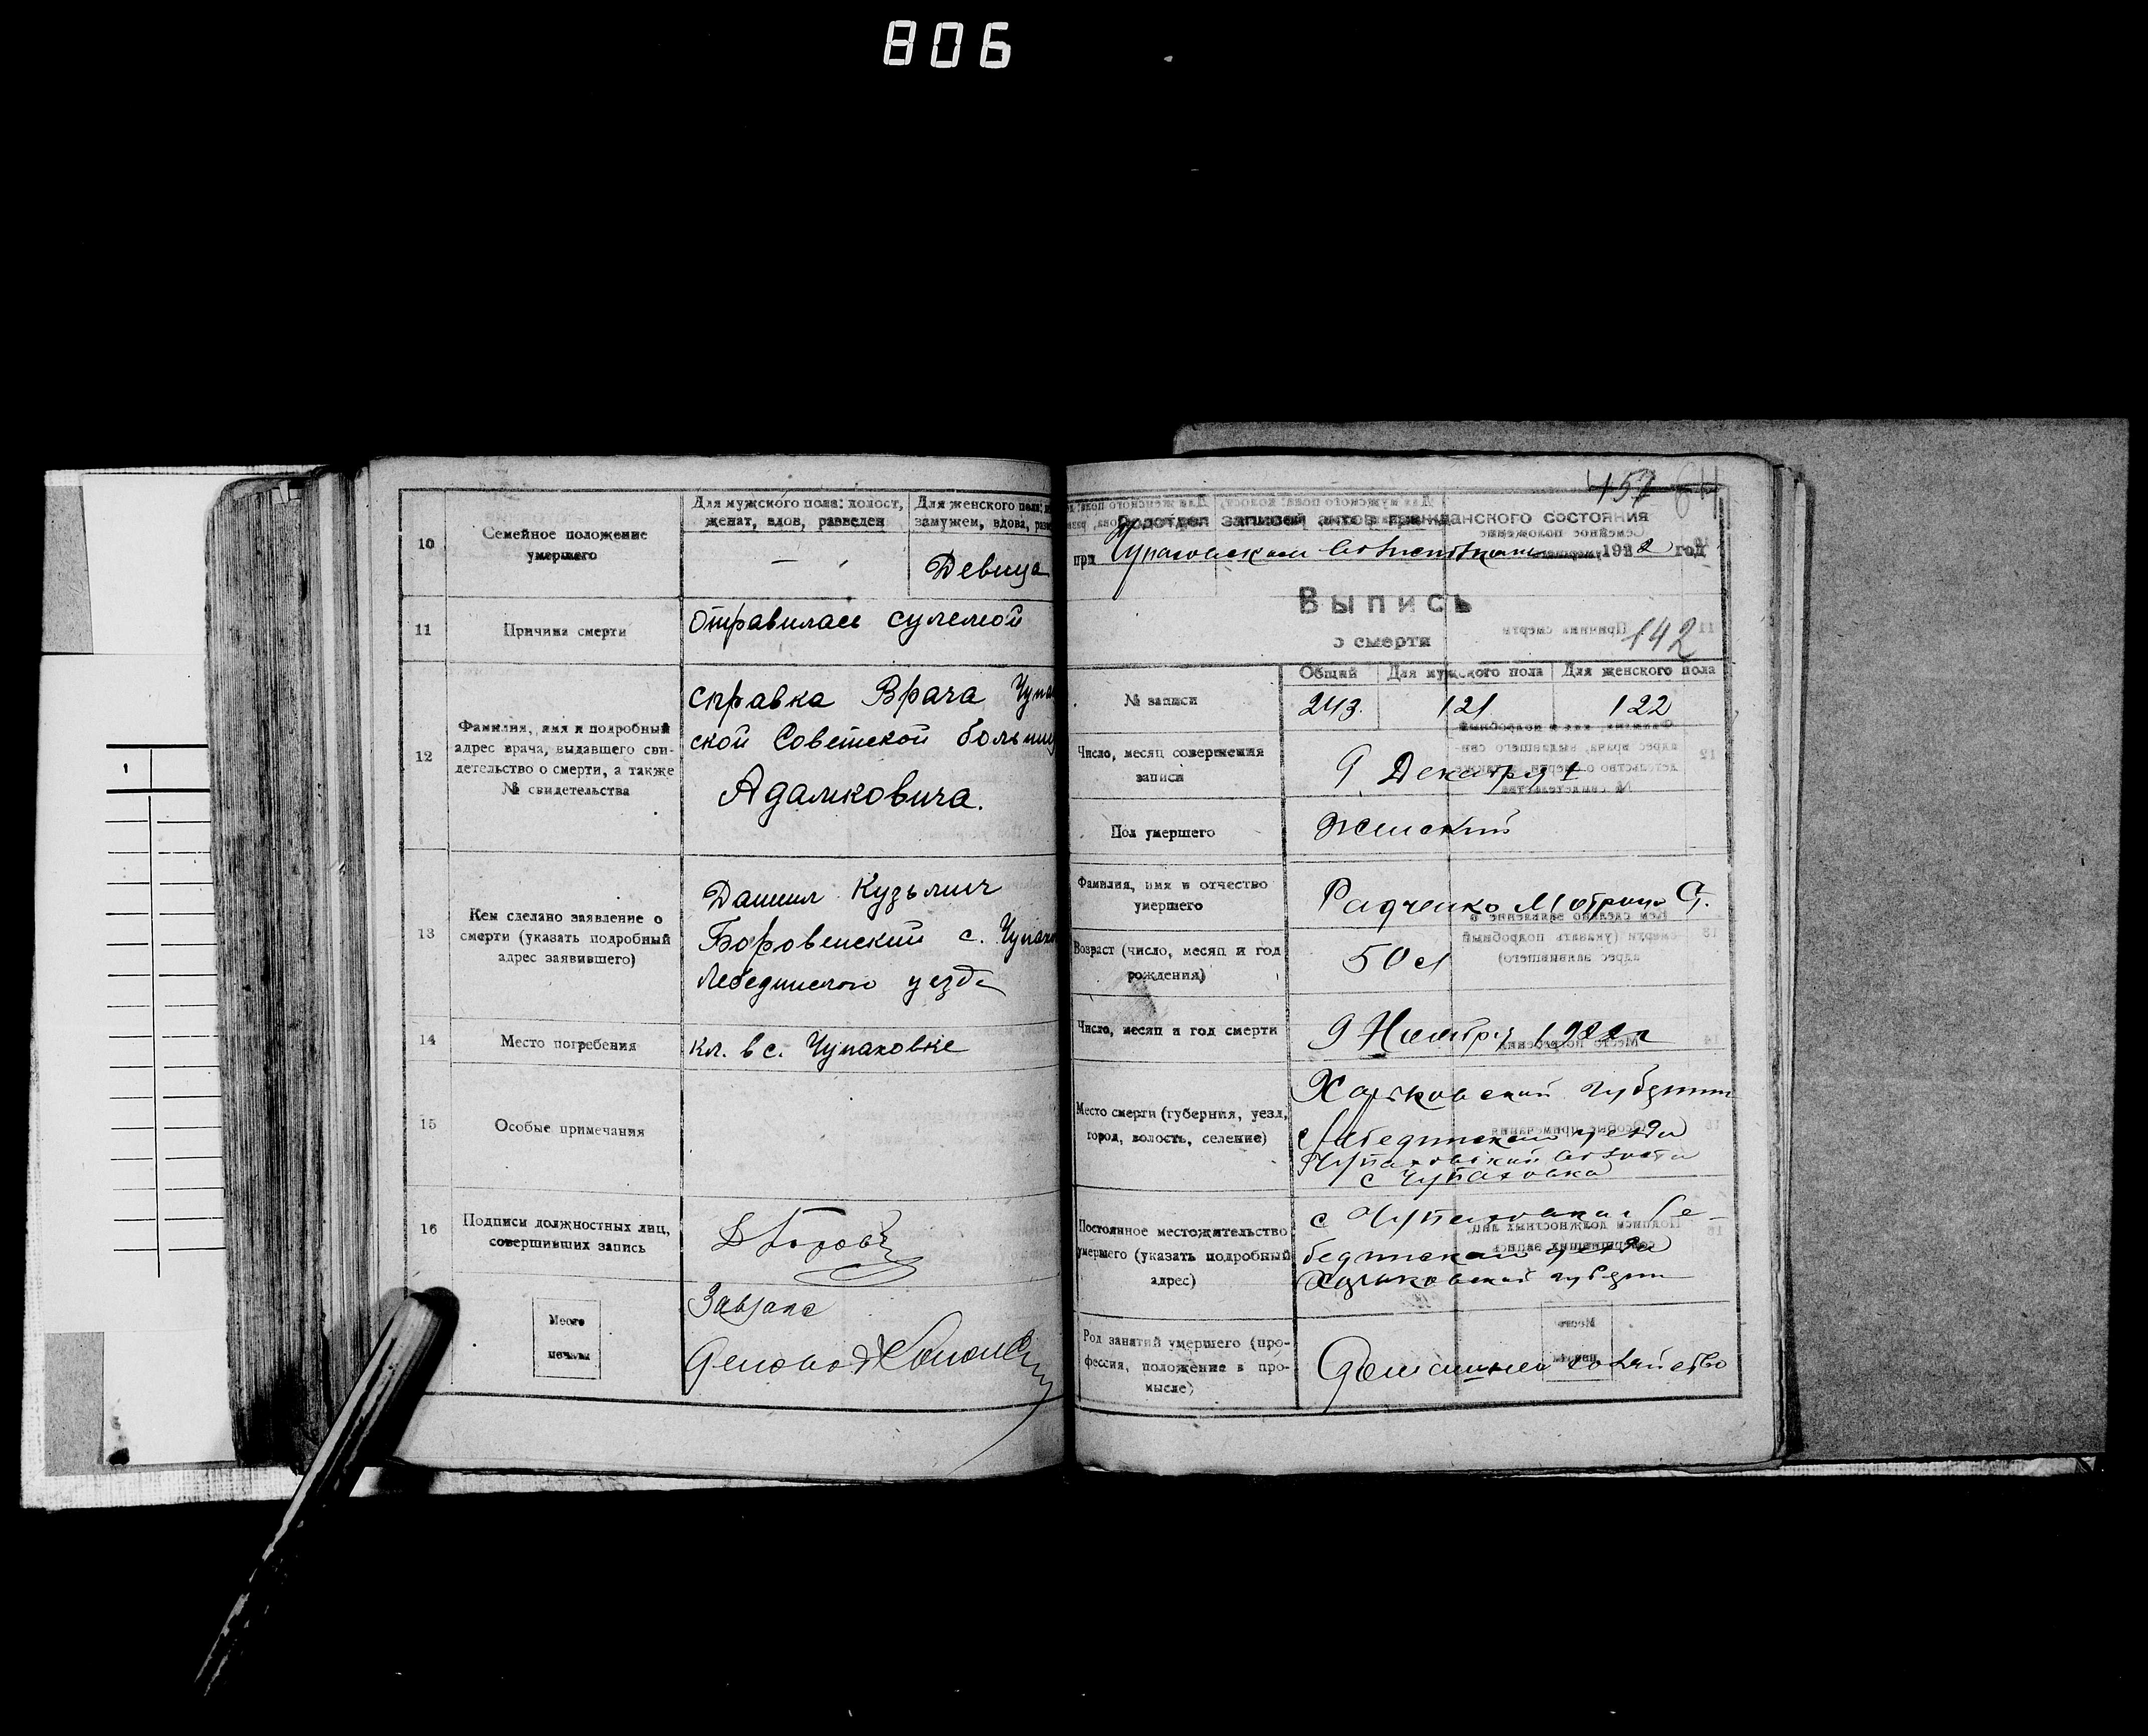 806
10
Семейное положение
умершего
Для мужского пола: холост,
женат, вдов, разведен
Для женского пола:
замужем, вдова,
—
Девица
11
Причина смерти
Отравилась сулемой
12
Фамилия, имя и подробный
адрес врача, выдавшего сви-
детельство о смерти, а также
№ свидетельства
справка Врача
ской Советской
Адамковича.
13
Кем сделано заявление о
смерти (указать подробный
адрес заявившего)
Даниил Кузьмич
Боровенский с.
Лебединского уезда
14
Место погребения
кл. в с. Чупаховке
15
Особые примечания
16
Подписи должностных лиц,
совершивших запись
Место
печати
157
Подотдел записей актов гражданского состояния
при 1922 год
Выпись
о смерти
142
№ записи
Общий
Для мужского пола
Для женского пола
243.
121
122
Число, месяц совершения
записи
9 Декабря
Пол умершего
Женский
Фамилия, имя и отчество
умершего
Радченко Мотрина С.
Возраст (число, месяц и год
рождения)
50 л
Число, месяц и год смерти
9 Ноября 1922 г
Место смерти (губерния, уезд,
город, волость, селение)
Харьковской губернии
Лебединского уезда
Чупаховской волости
с Чупаховка
Постоянное местожительство
умершего (указать подробный
адрес)
с Чупаховка Ле-
бединского уезда
Харьковской губерни
Род занятий умершего (про-
фессия, положение в про-
мысле)
Домашнее хозяйство